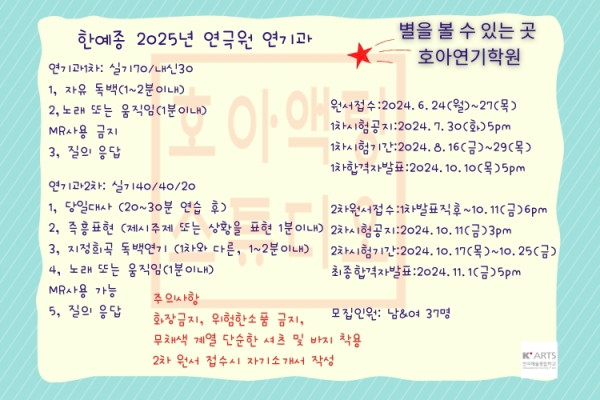 한예종 2025년 연극원 연기과
별을 볼 수 있는 곳
호아연기학원
연기과1차: 실기70/내신30
1, 자유 독백(1~2분이내)
2,노래 또는 움직임(1분이내)
MR사용 금지
3, 질의 응답
원서접수:2024.6.24(월)~27(목)
1차시험공지:2024.7.30(화)5pm
1차시험기간:2024.8.16(금)~29(목)
1차합격자발표:2024.10.10(목)5pm
연기과2차: 실기40/40/20
1, 당일대사 (20~30분 연습 후)
2, 즉흥표현 (제시주제 또는 상황을 표현 1분이내)
3, 지정희곡 독백연기 (1차와 다른, 1~2분이내)
4, 노래 또는 움직임(1분이내)
MR사용 가능
5, 질의 응답
2차원서접수:1차발표직후~10.11(금)6pm
2차시험공지:2024.10.11(금)3pm
2차시험기간:2024.10.17(목)~10.25(금)
최종합격자발표:2024.11.1(금)5pm
모집인원: 남&여 37명
주의사항
화장금지, 위험한소품 금지,
무채색 계열 단순한 셔츠 및 바지 착용
2차 원서 접수시 자기소개서 작성
호아액팅
스튜디오
K'ARTS
한국예술종합학교